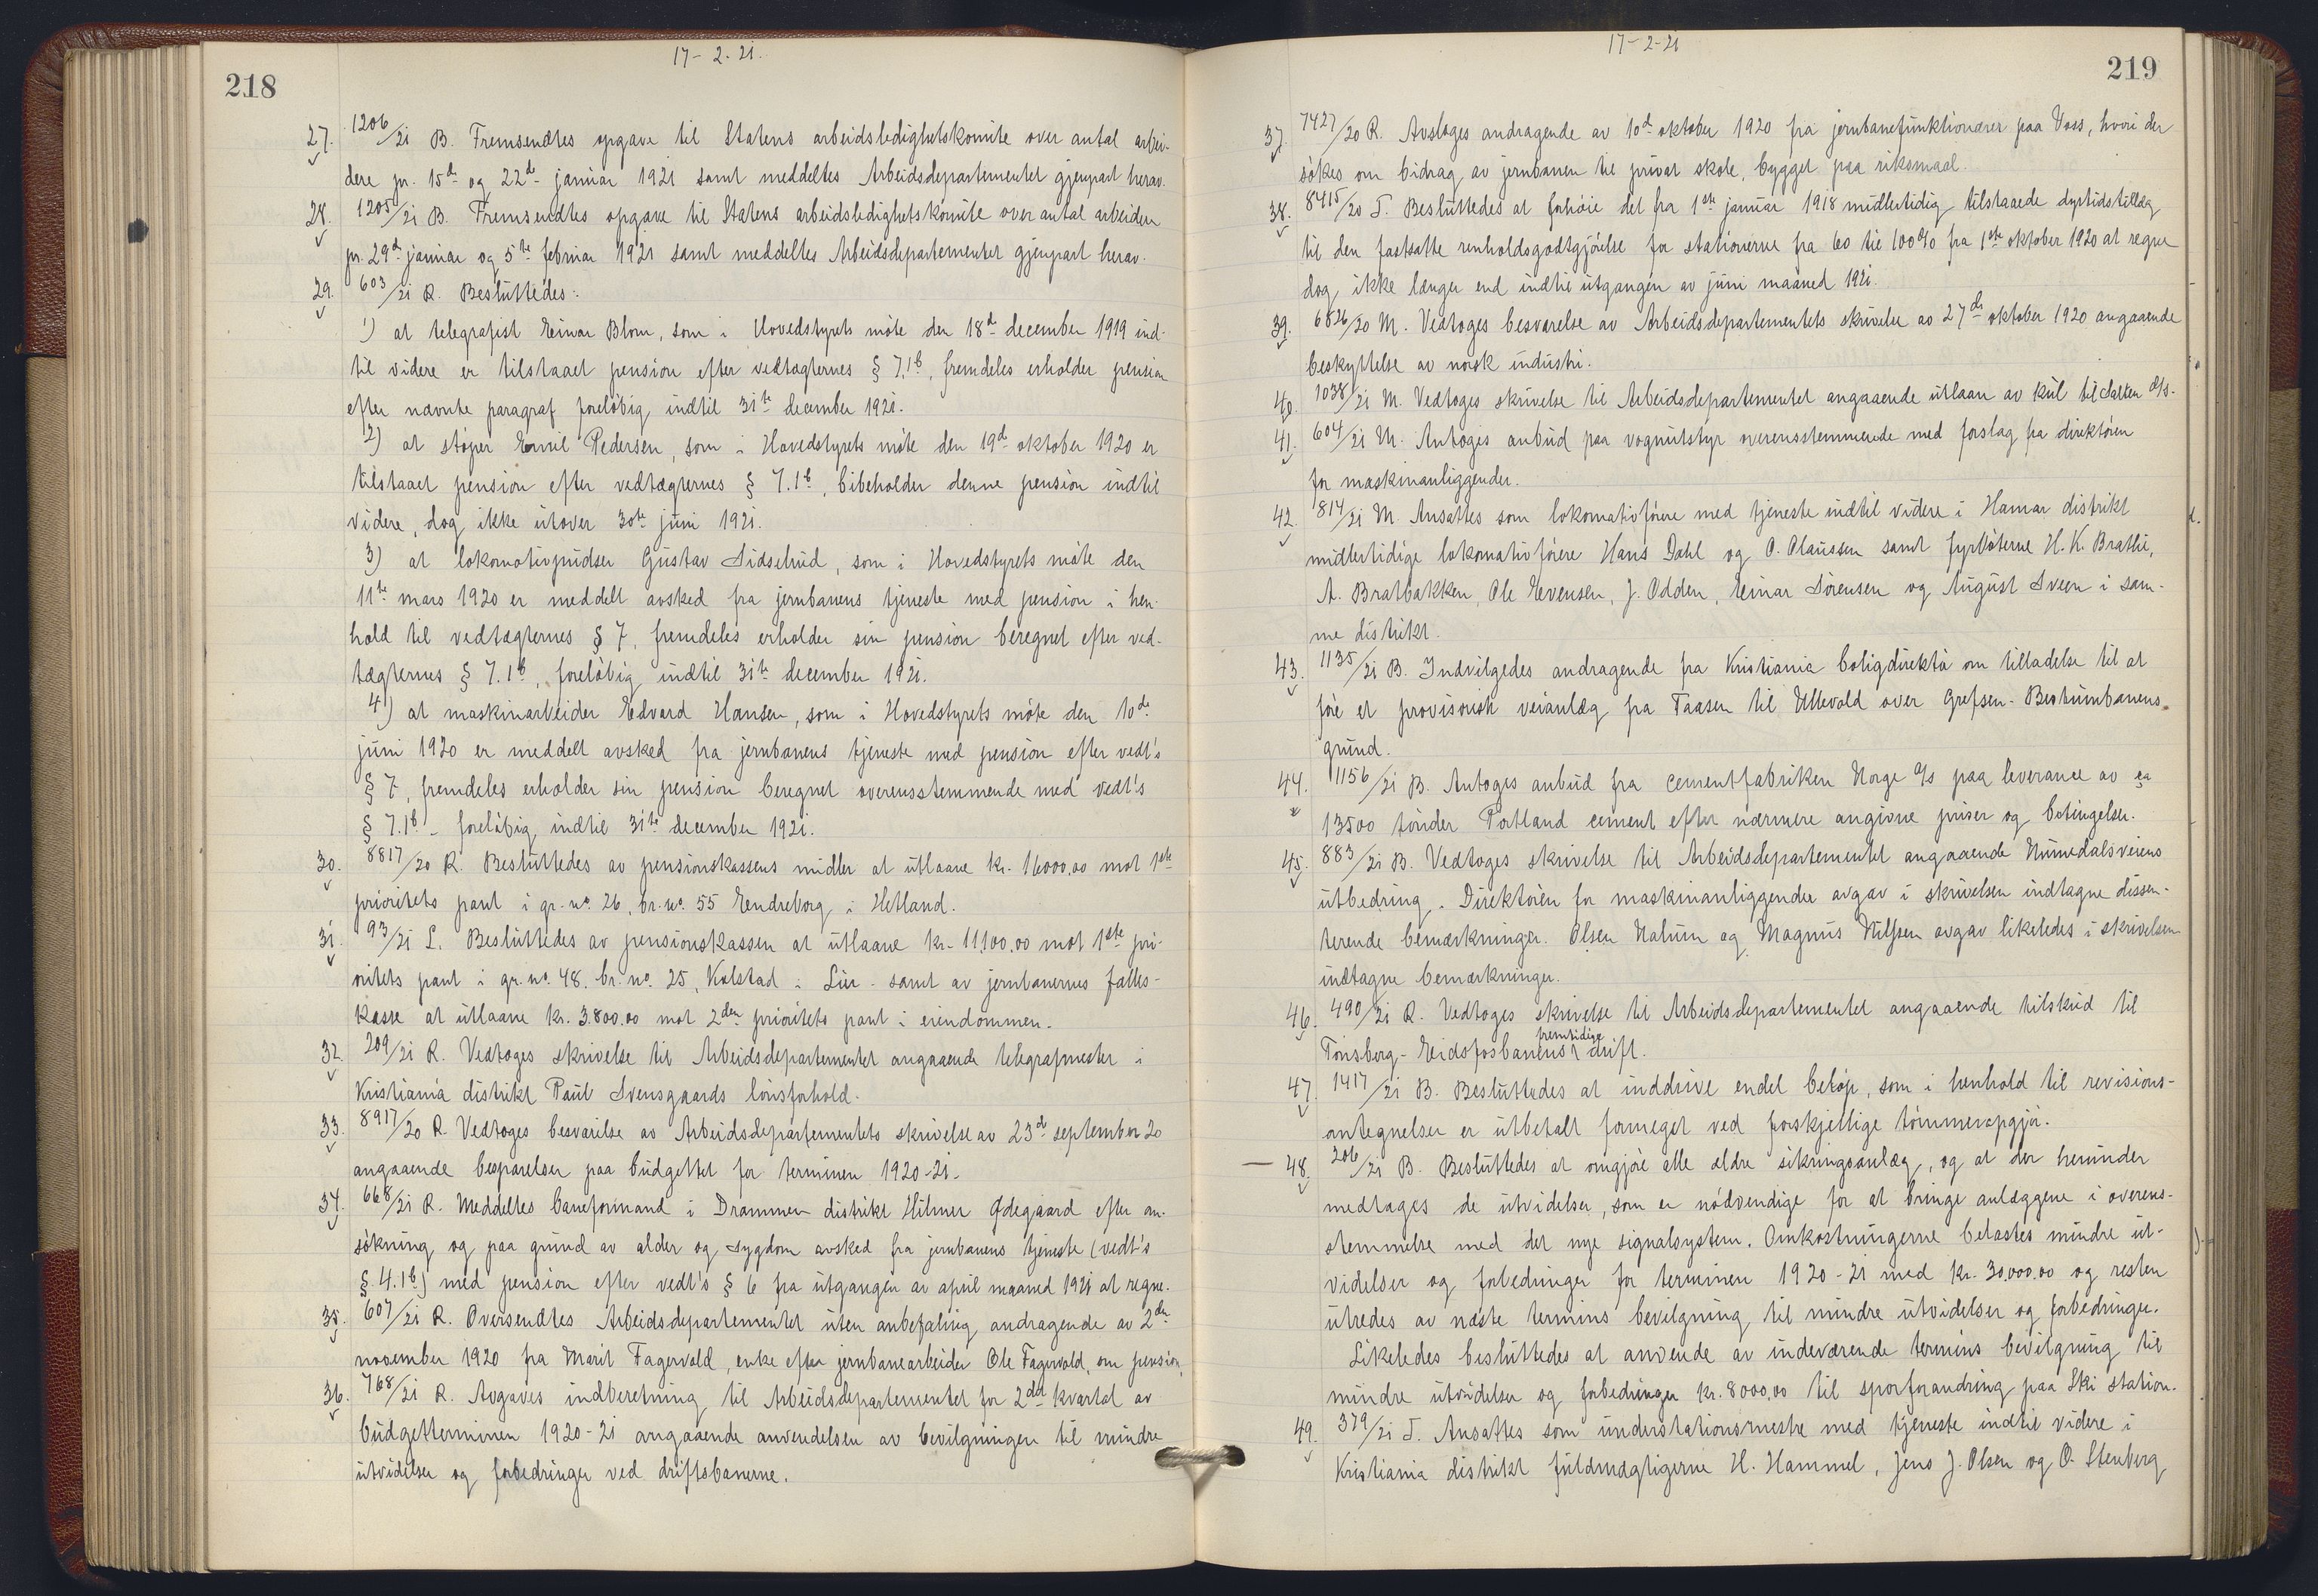 17-2-21.
218
27. 1206/21 B. Fremsendtes opgave til Statens arbeidsledighetskomite over antal arbei-
dere pr. 15de og 22de januar 1921 samt meddeltes Arbeidsdepartementet gjenpart herav.
28. 1205/21 B. Fremsendtes opgave til Statens arbeidsledighetskomite over antal arbeidere
pr. 29de januar og 5te februar 1921 samt meddeltes Arbeidsdepartementet gjenpart herav.
29. 603/21 R. Besluttedes:
1) at telegrafist Einar Blom, som i Hovedstyrets møte den 18de december 1919 ind-
til videre er tilstaaet pension efter vedtægternes § 7.1b, fremdeles erholder pension
efter nævnte paragraf foreløbig indtil 31te december 1921.
2) at støper Emil Pedersen, som i Hovedstyrets møte den 19de oktober 1920 er
tilstaaet pension efter vedtægternes § 7.1b, bibeholder denne pension indtil
videre, dog ikke utover 30te juni 1921.
3) at lokomotivpudser Gustav Sidselrud, som i Hovedstyrets møte den
11te mars 1920 er meddelt avsked fra jernbanens tjeneste med pension i hen-
hold til vedtægternes § 7, fremdeles erholder sin pension beregnet efter ved-
tægternes § 7.1b, foreløbig indtil 31te december 1921.
4) at maskinarbeider Edvard Hansen, som i Hovedstyrets møte den 10de
juni 1920 er meddelt avsked fra jernbanens tjeneste med pension efter vedt's
§ 7, fremdeles erholder sin pension beregnet overensstemmende med vedt's
§ 7.1b - foreløbig indtil 31te december 1921.
30. 8817/20 R. Besluttedes av pensionskassens midler at utlaane kr. 16000,00 mot 1ste
prioritets pant i gr. no. 26, br. no. 55 Endreborg i Hetland.
31. 93/21 L. Besluttedes av pensionskassen at utlaane kr. 11,100,00 mot 1ste pri-
oritets pant i gr. no. 48, br. no. 25, Kolstad i Lier - samt av jernbanernes fælles-
kasse at utlaane kr. 3.800,00 mot 2den prioritets pant i eiendommen.
32. 209/21 R. Vedtoges skrivelse til Arbeidsdepartementet angaaende telegrafmester i
Kristiania distrikt Paul Svensgaards lønsforhold.
33. 8917/20 R. Vedtoges besvarelse av Arbeidsdepartementets skrivelse av 23de september 20
angaaende besparelser paa budgettet for terminen 1920-21.
34. 668/21 R. Meddeltes baneformand i Drammen distrikt Hilmer Ødegaard efter an-
søkning og paa grund av alder og sygdom avsked fra jernbanens tjeneste (vedt's
§ 4.1b) med pension efter vedt's § 6 fra utgangen av april maaned 1921 at regne.
35. 607/21 R. Oversendtes Arbeidsdepartementet uten anbefaling andragende av 2den
november 1920 fra Marit Fagervold, enke efter jernbanearbeider Ole Fagervold, om pension.
36. 768/21 R. Avgaves indberetning til Arbeidsdepartementet for 2det kvartal av
budgetterminen 1920-21 angaaende anvendelsen av bevilgningen til mindre
utvidelser og forbedringer ved driftsbanerne.
17-2-21
219
37. 7427/20 R. Avsloges andragende av 10de oktober 1920 fra jernbanefunktionærer paa Voss, hvori der
søkes om bidrag av jernbanen til privat skole, bygget paa riksmaal.
38. 8415/20 T. Besluttedes at forhøie det fra 1ste januar 1918 midlertidig tilstaaede dyrtidstillæg
til den fastsatte renholdsgodtgjørelse for stationerne fra 60 til 100% fra 1ste oktober 1920 at regne
dog ikke længer end indtil utgangen av juni maaned 1921.
39. 6826/20 M. Vedtoges besvarelse av Arbeidsdepartementets skrivelse av 27de oktober 1920 angaaende
beskyttelse av norsk industri.
40. 1038/21 M. Vedtoges skrivelse til Arbeidsdepartementet angaaende utlaan av kul til Salten D/s.
41. 604/21 M. Antoges anbud paa vognutstyr overensstemmende med forslag fra direktøren
for maskinanliggender.
42. 814/21 M. Ansattes som lokomotivførere med tjeneste indtil videre i Hamar distrikt
midlertidige lokomotivførere Hans Dahl og O. Olaussen samt fyrbøterne H. K. Brathe,
A. Bratbakken, Ole Evensen, J. Odden, Einar Sørensen og August Sveen i sam-
me distrikt.
43. 1135/21 B. Indvilgedes andragende fra Kristiania boligdirektør om tilladelse til at
føre et provisorisk veianlæg fra Taasen til Ullevold over Grefsen-Bestumbanens
grund.
44. 1156/21 B. Antoges anbud fra cementfabriken Norge A/s paa leverance av ca
13500 tønder Portland cement efter nærmere angivne priser og betingelser.
45. 883/21 B. Vedtoges skrivelse til Arbeidsdepartementet angaaende Numedalsveiens
utbedring. Direktøren for maskinanliggender avgav i skrivelsen indtagne dissen-
terende bemærkninger. Olsen Nalum og Magnus Nilssen avgav likeledes i skrivelsen
indtagne bemærkninger.
46. 490/21 R. Vedtoges skrivelse til Arbeidsdepartementet angaaende tilskud til
Tønsberg-Eidsfosbanens fremtidige drift.
47. 1417/21 B. Besluttedes at inddrive endel beløp, som i henhold til revisions-
antegnelser er utbetalt formeget ved forskjellige tømmeropgjør.
— 48. 206/21 B. Besluttedes at omgjøre alle ældre sikringsanlæg, og at der herunder
medtages de utvidelser, som er nødvendige for at bringe anlæggene i overens-
stemmelse med det nye signalsystem. Omkostningerne belastes mindre ut-
videlser og forbedringer for terminen 1920-21 med kr. 30,000.00 og resten
utredes av næste termins bevilgning til mindre utvidelser og forbedringer.
Likeledes besluttedes at anvende av indeværende termins bevilgning til
mindre utvidelser og forbedringer kr. 8000,00 til sporforandring paa Ski station.
49. 379/21 T. Ansattes som understationsmestre med tjeneste indtil videre i
Kristiania distrikt fuldmægtigerne H. Hammel, Jens J. Olsen og O. Stenberg